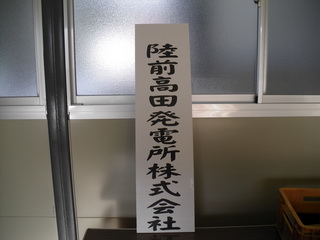 陸前高田発電所株式会社